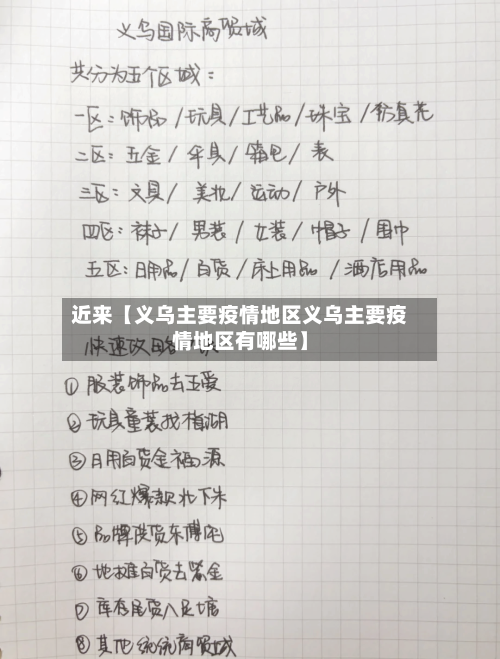 义乌国际商贸城
共分为五个区域：
一区：饰品/玩具/工艺品/珠宝/仿真花
二区：五金/伞具/箱包/表
三区：文具/美妆/运动/户外
四区：袜子/男装/女装/帽子/围巾
五区：日用品/百货/床上用品/酒店用品
近来【义乌主要疫情地区义乌主要疫
情地区有哪些】
快速攻
①服装饰品去五爱
②玩具童装找梅湖
③日用百货金福源
④网红爆款北下朱
⑤品牌跌货东傅宅
⑥地摊百货去紫金
⑦库存尾货入五塘
⑧其他统统商贸城